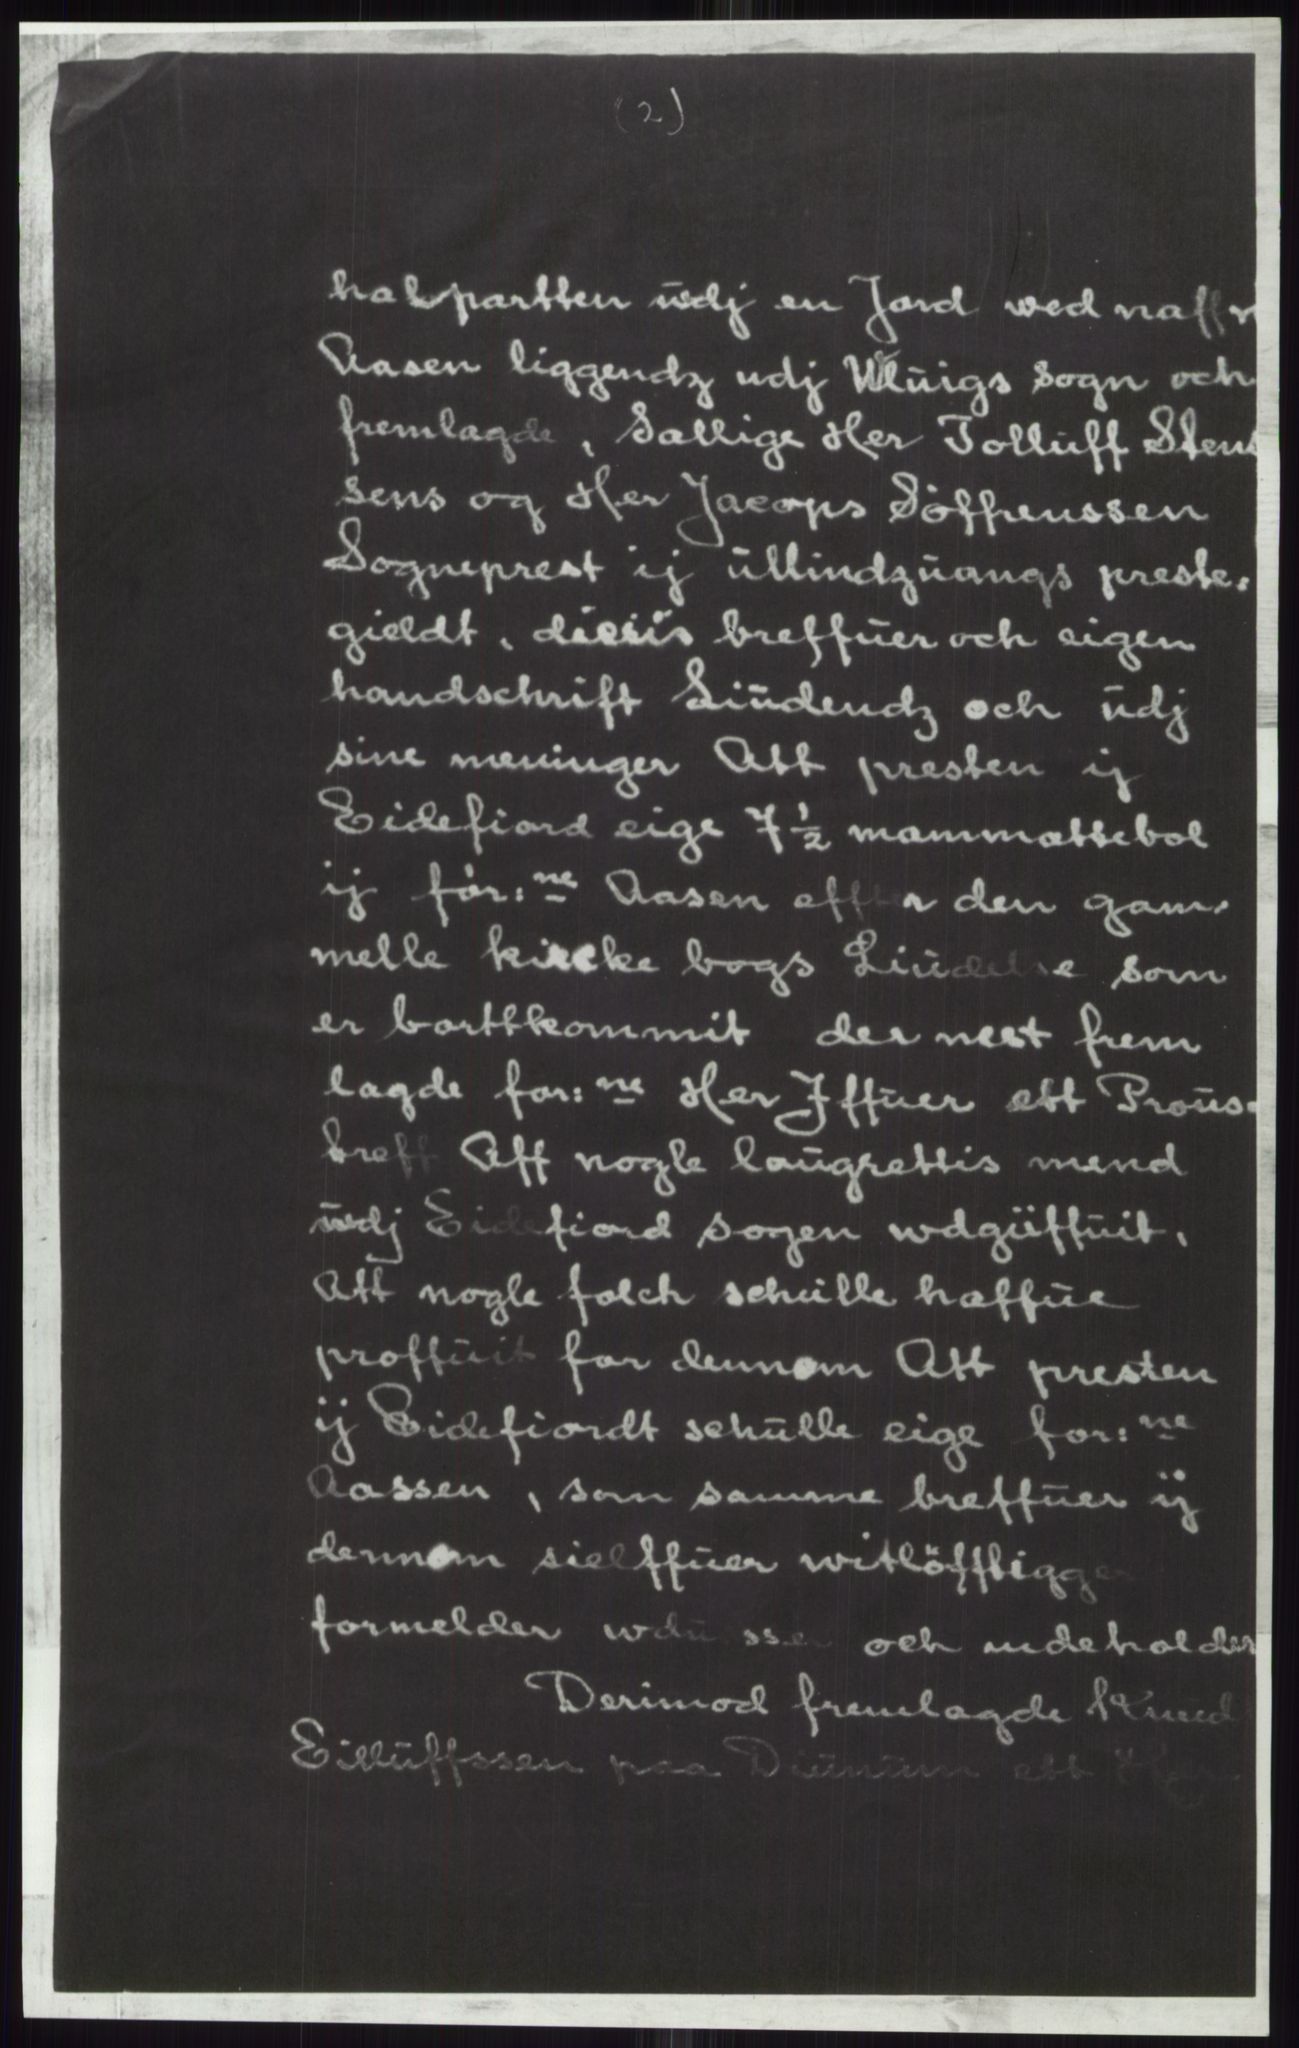 (2)
halpartten udj en Jord wed naffn
Aasen liggendz udj Wluigs sogn och
fremlagde, Sallige Her Tolluff Stens
sens og Her Jacops Söffrenssen
Sogneprest ij ullindzuangs preste-
gieldt, diesis breffuer och eigen
handschrift Liudendz och udj
sine meninger Att presten ij
Eidefiord eige 7½ mammattebol
ij før:ne Aasen effter den gam-
melle kircke bogs Liudelse som
er borttkommit der nest frem
lagde for:ne Her Jffuer ett Prous-
breff Aff nogle laugrettis mend
udj Eidefiord sogen wdgüffuit,
Att nogle folck schulle haffue
proffuit for dennom Att presten
ij Eidefiordt schulle eige for:ne
Aassen, som samme breffuer ij
dennom sielffuer witlöffligger
formelder och indeholder
Derimod fremlagde Knud
Eilluffssen paa ett